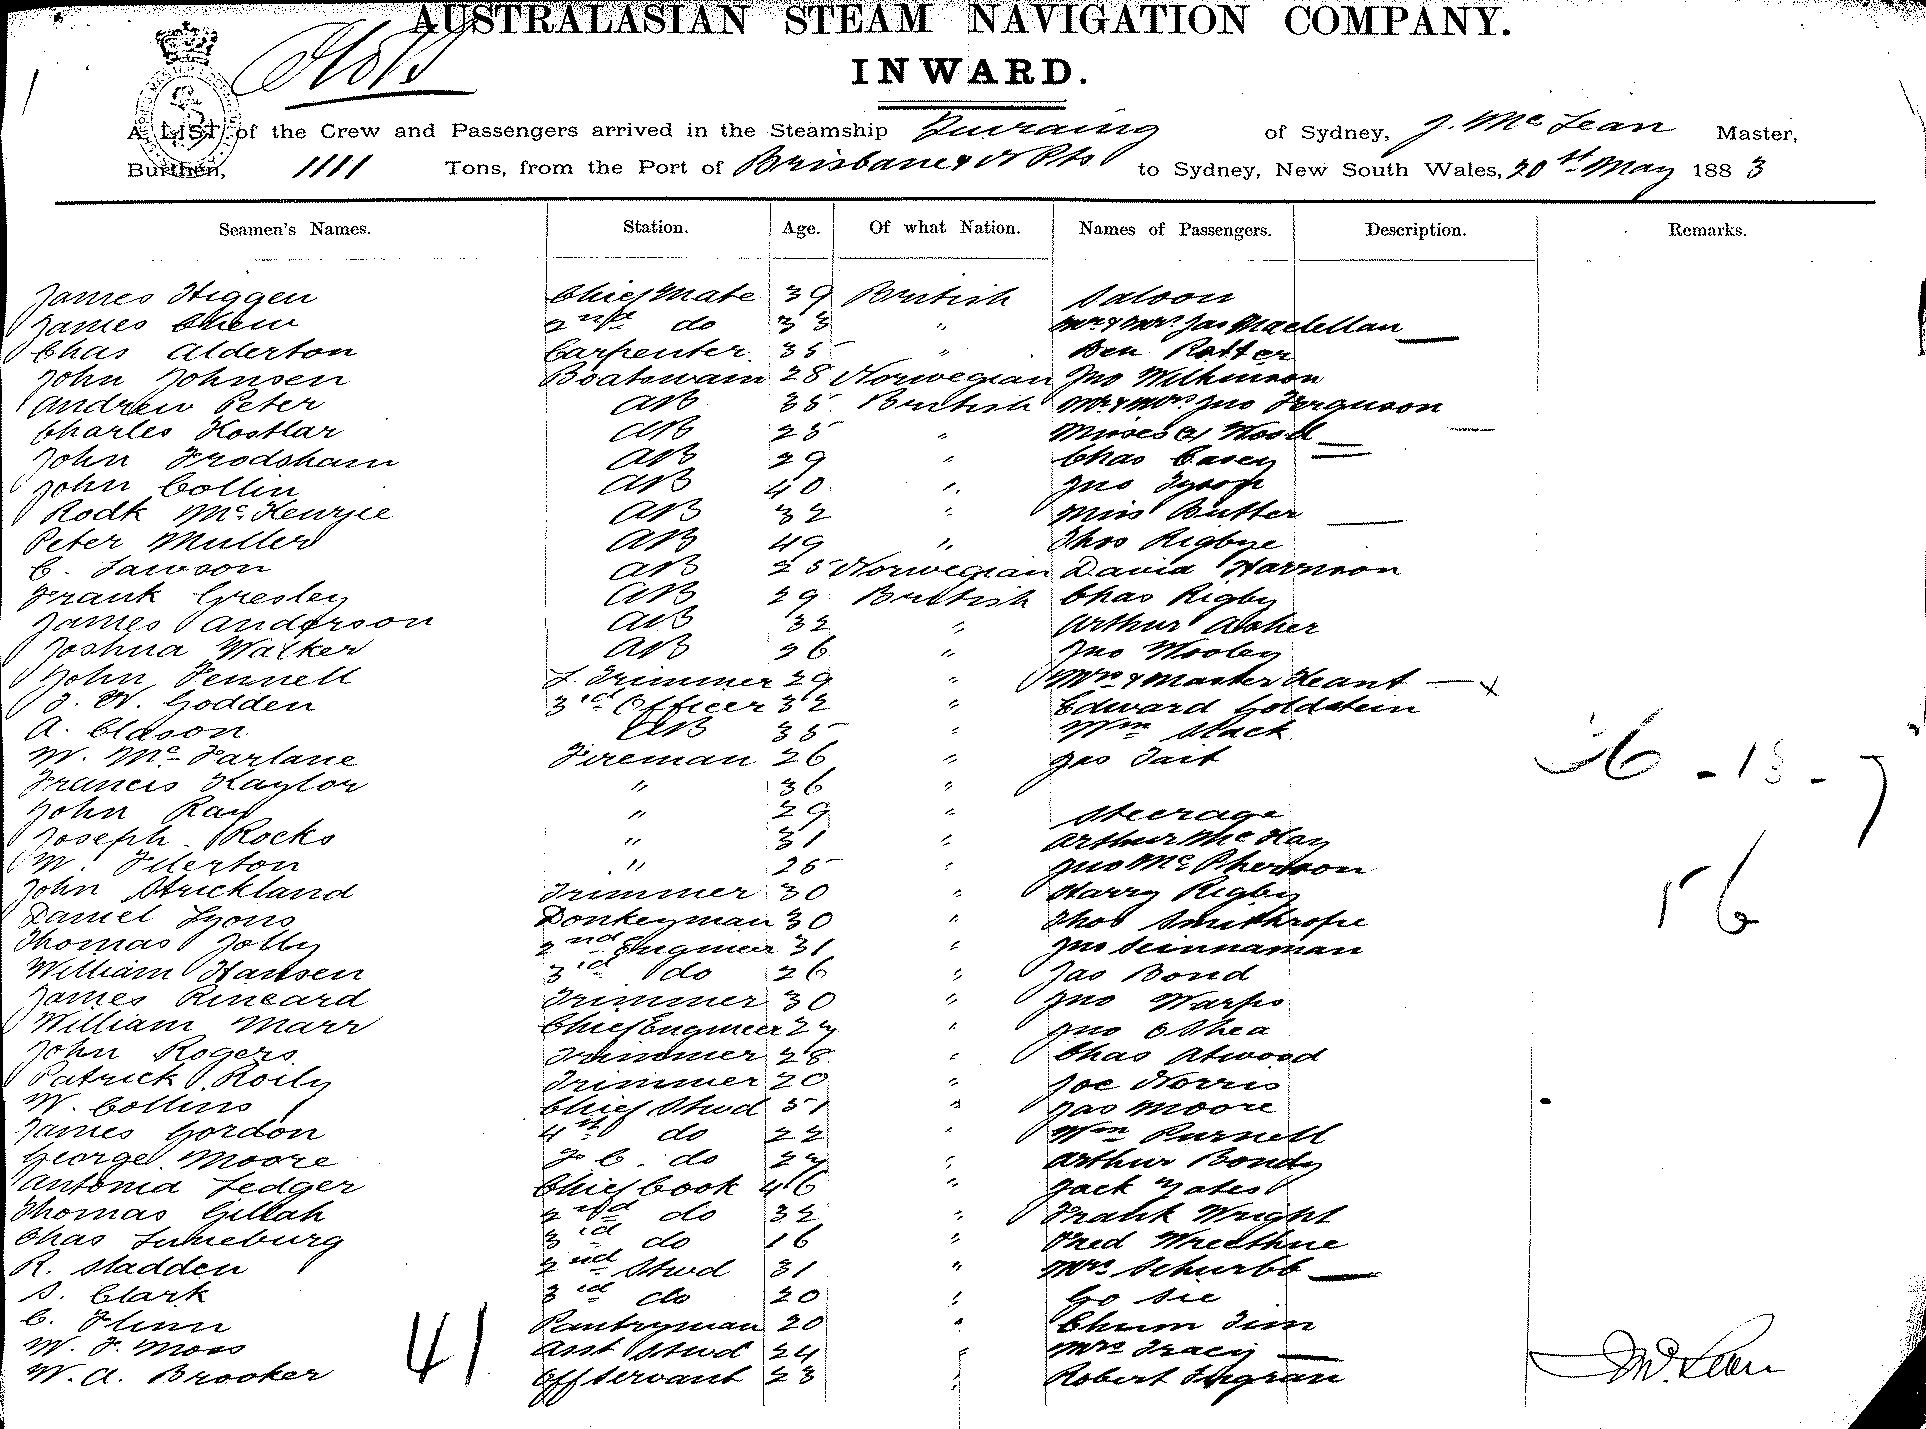 AUSTRALASIAN STEAM NAVIGATION COMPANY.
INWARD.
A LIST of the Crew and Passengers arrived in the Steamship Quiraing of Sydney, J. McLean Master,
Burthen, 1111 Tons, from the Port of Brisbane & N Pts to Sydney, New South Wales, 20th May 1883
Seamen's Names. Station. Age. Of what Nation. Names of Passengers. Description. Remarks.
James Higgen Chief Mate 39 British Saloon
James Chew 2nd do 33 " Mr & Mrs Jas Maclellan
Chas Alderton Carpenter 35 " Ben Rotter
John Johnsen Boatswain 28 Norwegian Jno Wilkinson
Andrew Peter AB 35 British Mr & Mrs Jno Ferguson
Charles Hostlar AB 25 " Misses Wood
John Frodsham AB 29 " Chas Casey
John Collin AB 40 " Jno Tyson
Rodk McKenzie AB 32 " Miss Butter
Peter Muller AB 49 " Thos Rigbye
C. Lawson AB 25 Norwegian David Harrison
Frank Gresley AB 29 British Chas Rigby
James Anderson AB 32 " Arthur Asher
Joshua Walker AB 26 " Jno Wooley
John Fennell L. Trimmer 29 " Mrs & Master Heant x
J. W. Godden 3rd Officer 32 " Edward Goldstein
A. Clason AB 35 " Wm Stack
W. McFarlane Fireman 26 " Jas Tait
Francis Kaylor " 36 "
John Ray " 29 " Steerage
Joseph Rocks " 31 " Arthur McKay
W. Filerton " 25 " Jno McPherson
John Strickland Trimmer 30 " Harry Rigby
Daniel Lyons Donkeyman 30 " Thos Smithrope
Thomas Jolly 2nd Engineer 31 " Jno Scinnaman
William Hansen 3rd do 26 " Jas Bond
James Rineard Trimmer 30 " Jno Warps
William Marr Chief Engineer 27 " Jno OShea
John Rogers Trimmer 28 " Chas Atwood
Patrick Roily Trimmer 20 " Joe Norris
W. Collins Chief Stwd 51 " Jas Moore
James Gordon 4th do 22 " Wm Purnell
George Moore F. C. do 27 " Arthur Bondy
Antonia Ledger Chief Cook 46 " Jack Yates
Thomas Gillah 2nd do 32 " Frank Wright
Chas Luneburg 3rd do 16 " Fred
R. Madden 2nd Stwd 31 " Mrs Schurbb
S. Clark 3rd do 20 " Go Sie
C. Flinn Pantryman 20 " Chum Tim
W. F. Moss Asst Stwd 24 " Mrs Tracy
W. A. Brooker Off Servant 23 " Robert Ingran
41
56
J McLean